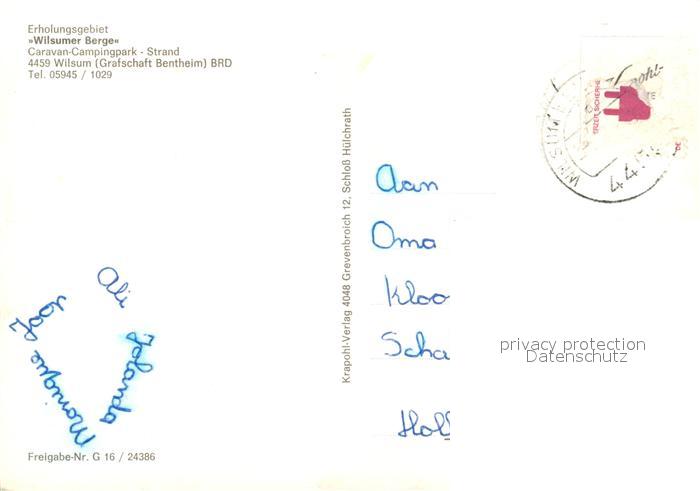 Erholungsgebiet
»Wilsumer Berge«
Caravan-Campingpark - Strand
4459 Wilsum (Grafschaft Bentheim) BRD
Tel. 05945 / 1029
Krapohl-Verlag 4048 Grevenbroich 12, Schloß Hülchrath
Aan
Oma
Kloo
Scha
Holl
privacy protection
Datenschutz
Ali
Joop
Jolanda
Monique
Freigabe-Nr. G 16 / 24386